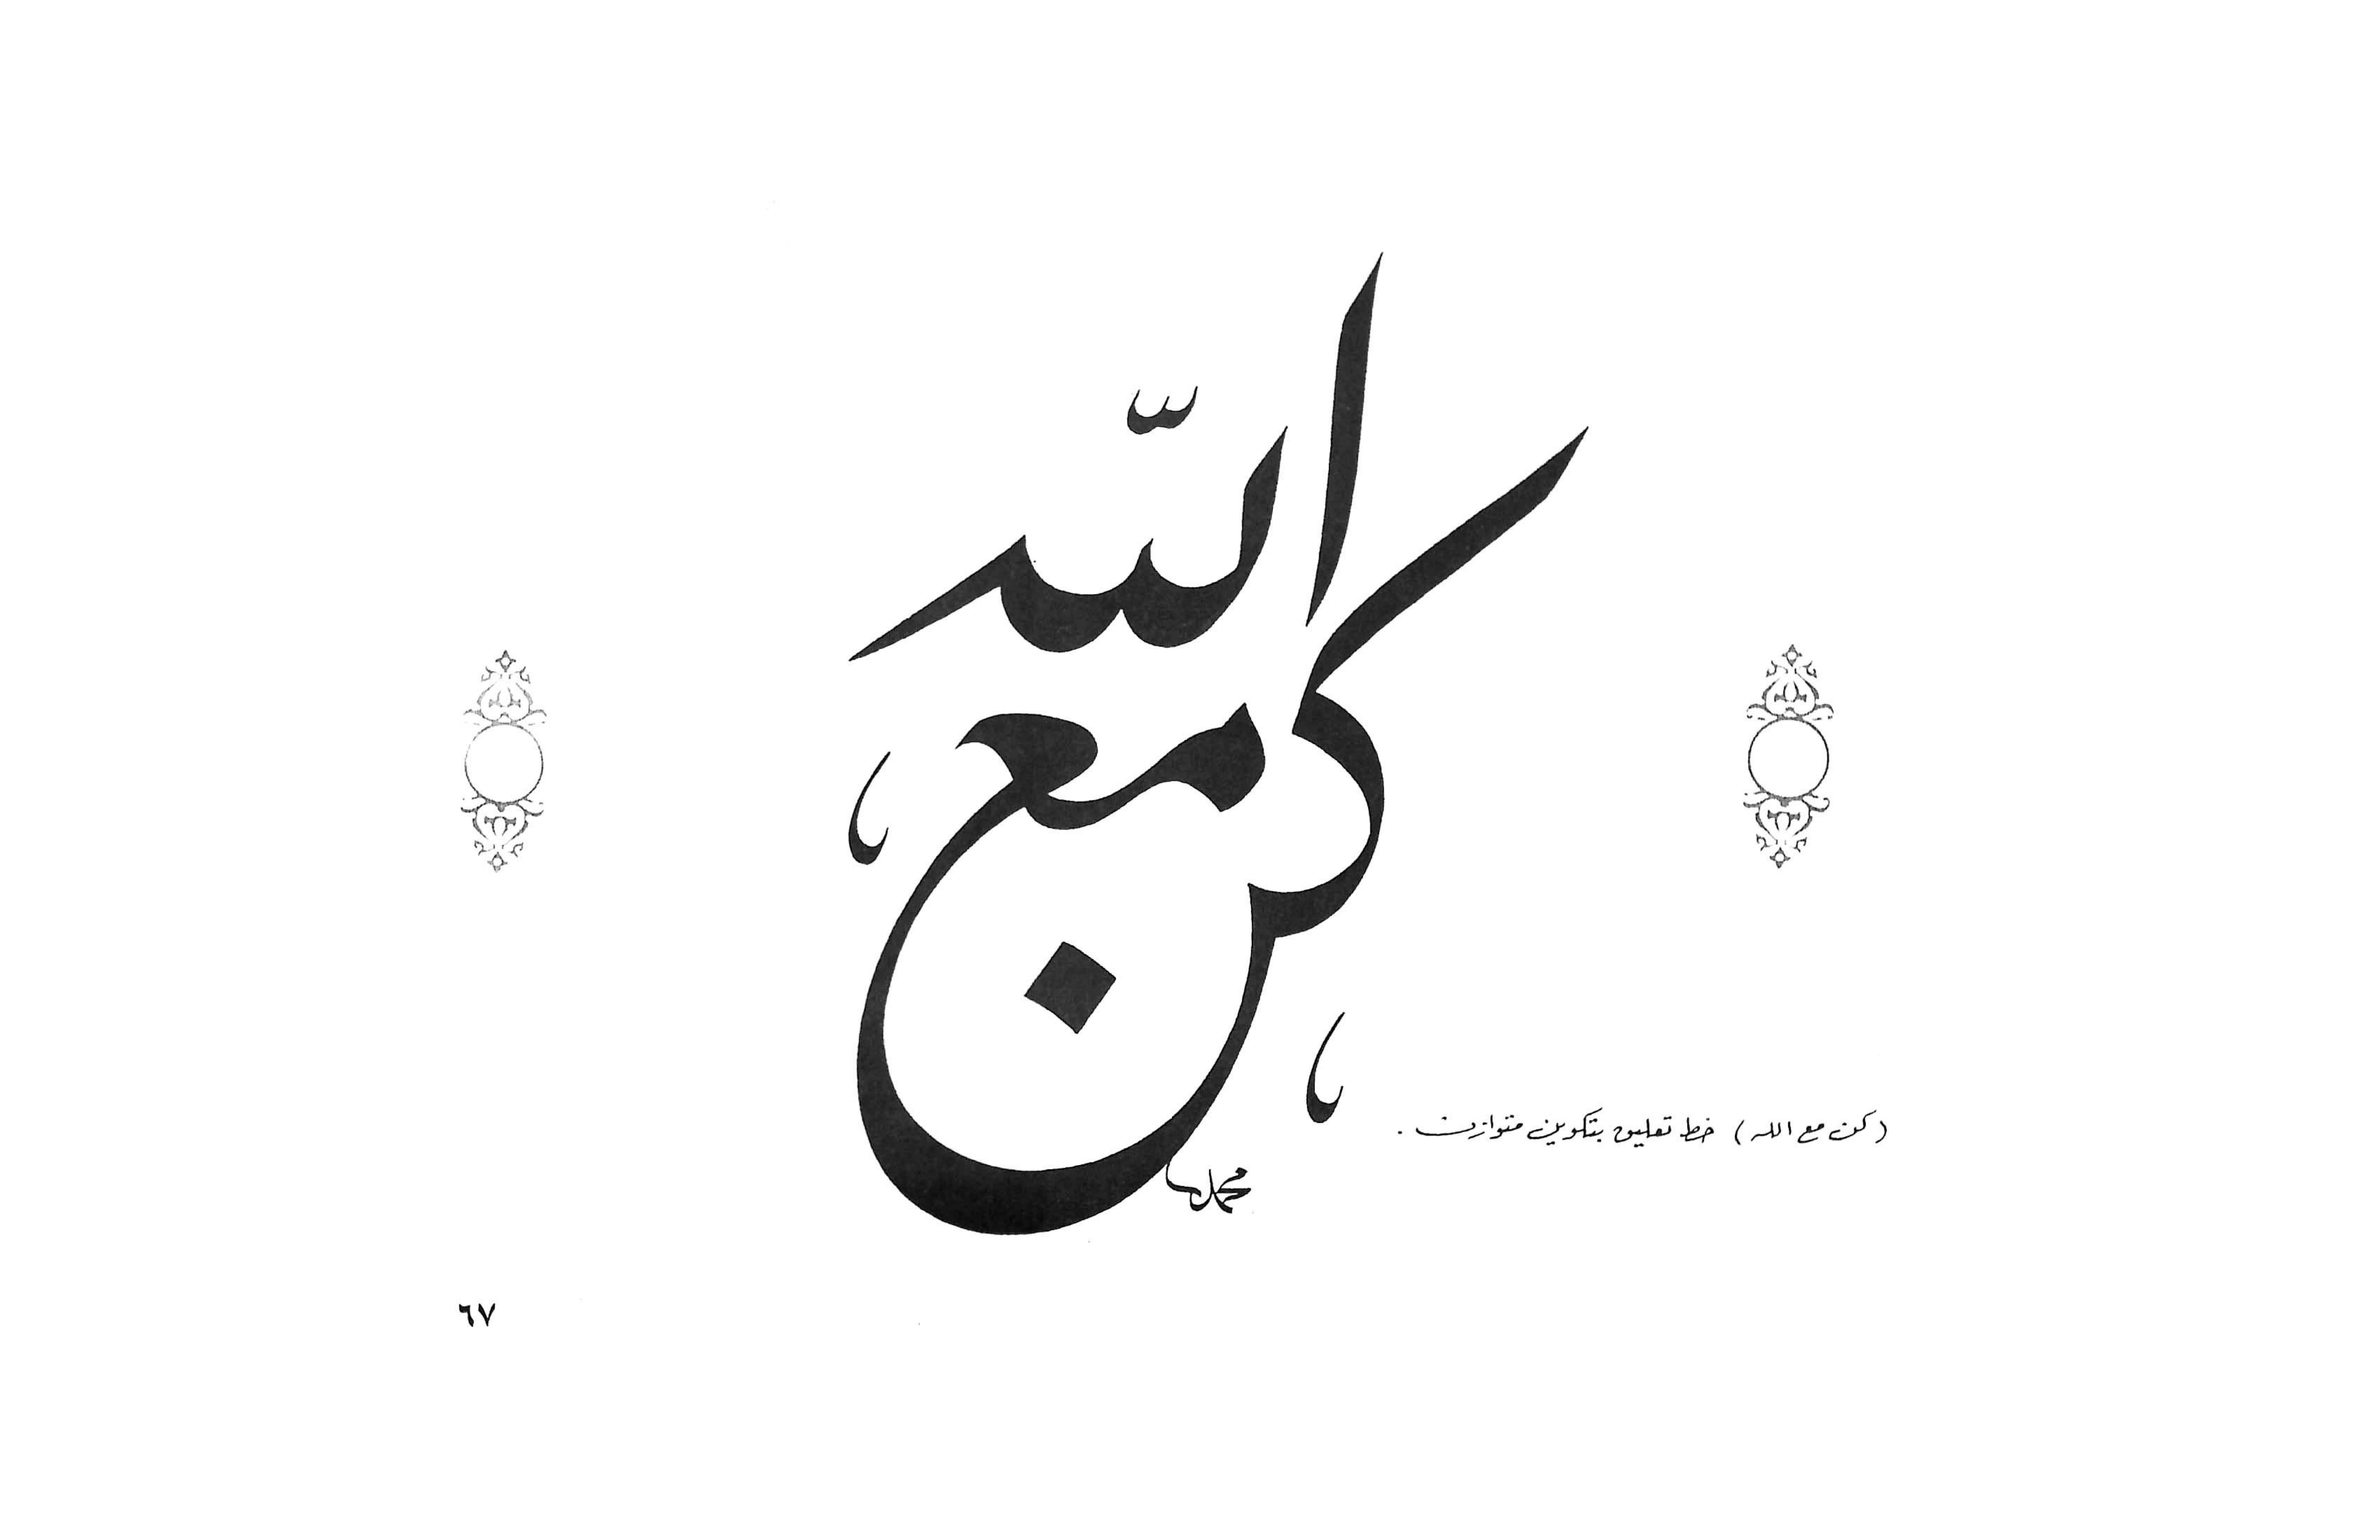 كن مع الله
(كن مع الله) خط تعليق بتكوين متوازن .
محمد
٦٧